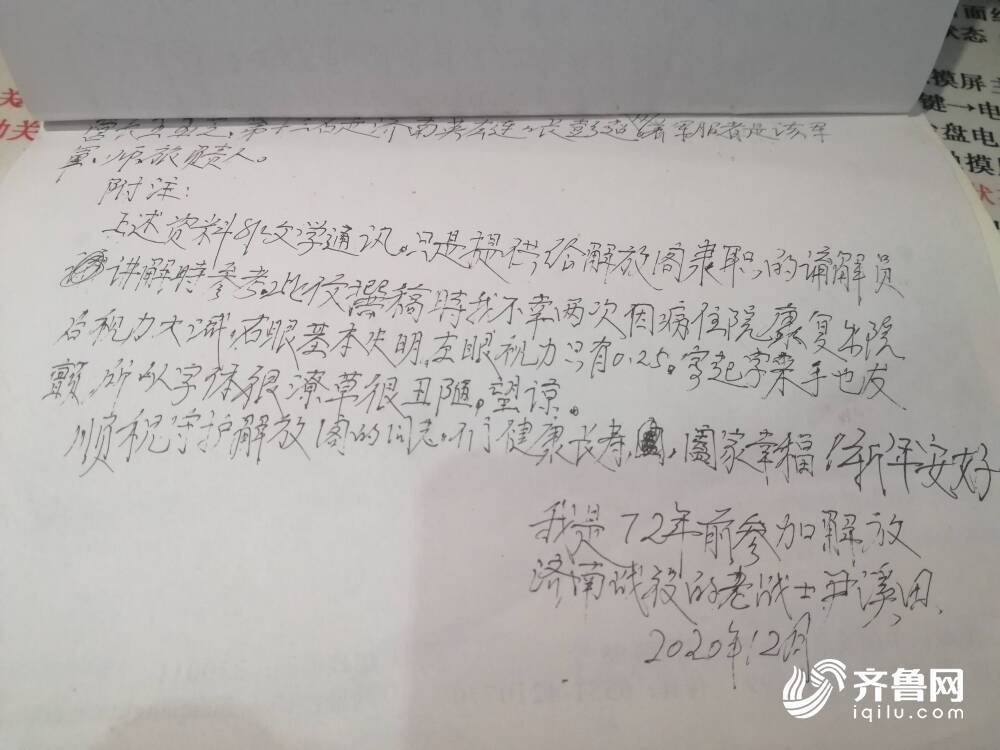 第十三 济南英雄 长 着军服者是该军
军、师、旅负责人。
附注:
上述资料非文学通讯。只是提供给解放阁兼职的讲解员
讲解时参考。 撰稿时我不幸两次因病住院康复出院
后视力大减,右眼基本失明,左眼视力只有0.25。写起字来手也发
颤,所以字体很潦草很丑陋。望谅。
顺祝守护解放阁的同志们健康长寿,阖家幸福!新年安好
我是72年前参加解放
济南战役的老战士
2020年12月
面
状态
摸屏
键→电
盘电
摸
状
关
动关
齐鲁网
iqilu.com